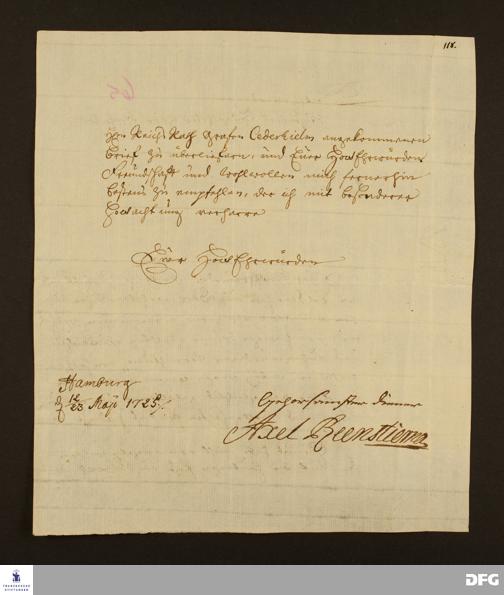 118.
65
Herrn Reichs Rath Grafen Cederhielm angekommenen
brief zu überliefern, und Euer HochEhrwürden
Freundschafft und wohlwollen mich fernerhin
bestens zu empfehlen, der ich mit besonderer
Hochachtung verharre
Euer HochEhrwürden
Hamburg
d 12/23 Maji 1725.
gehorsamster diener
Axel Reenstierna
FRANCKESCHE
STIFTUNGEN
DFG